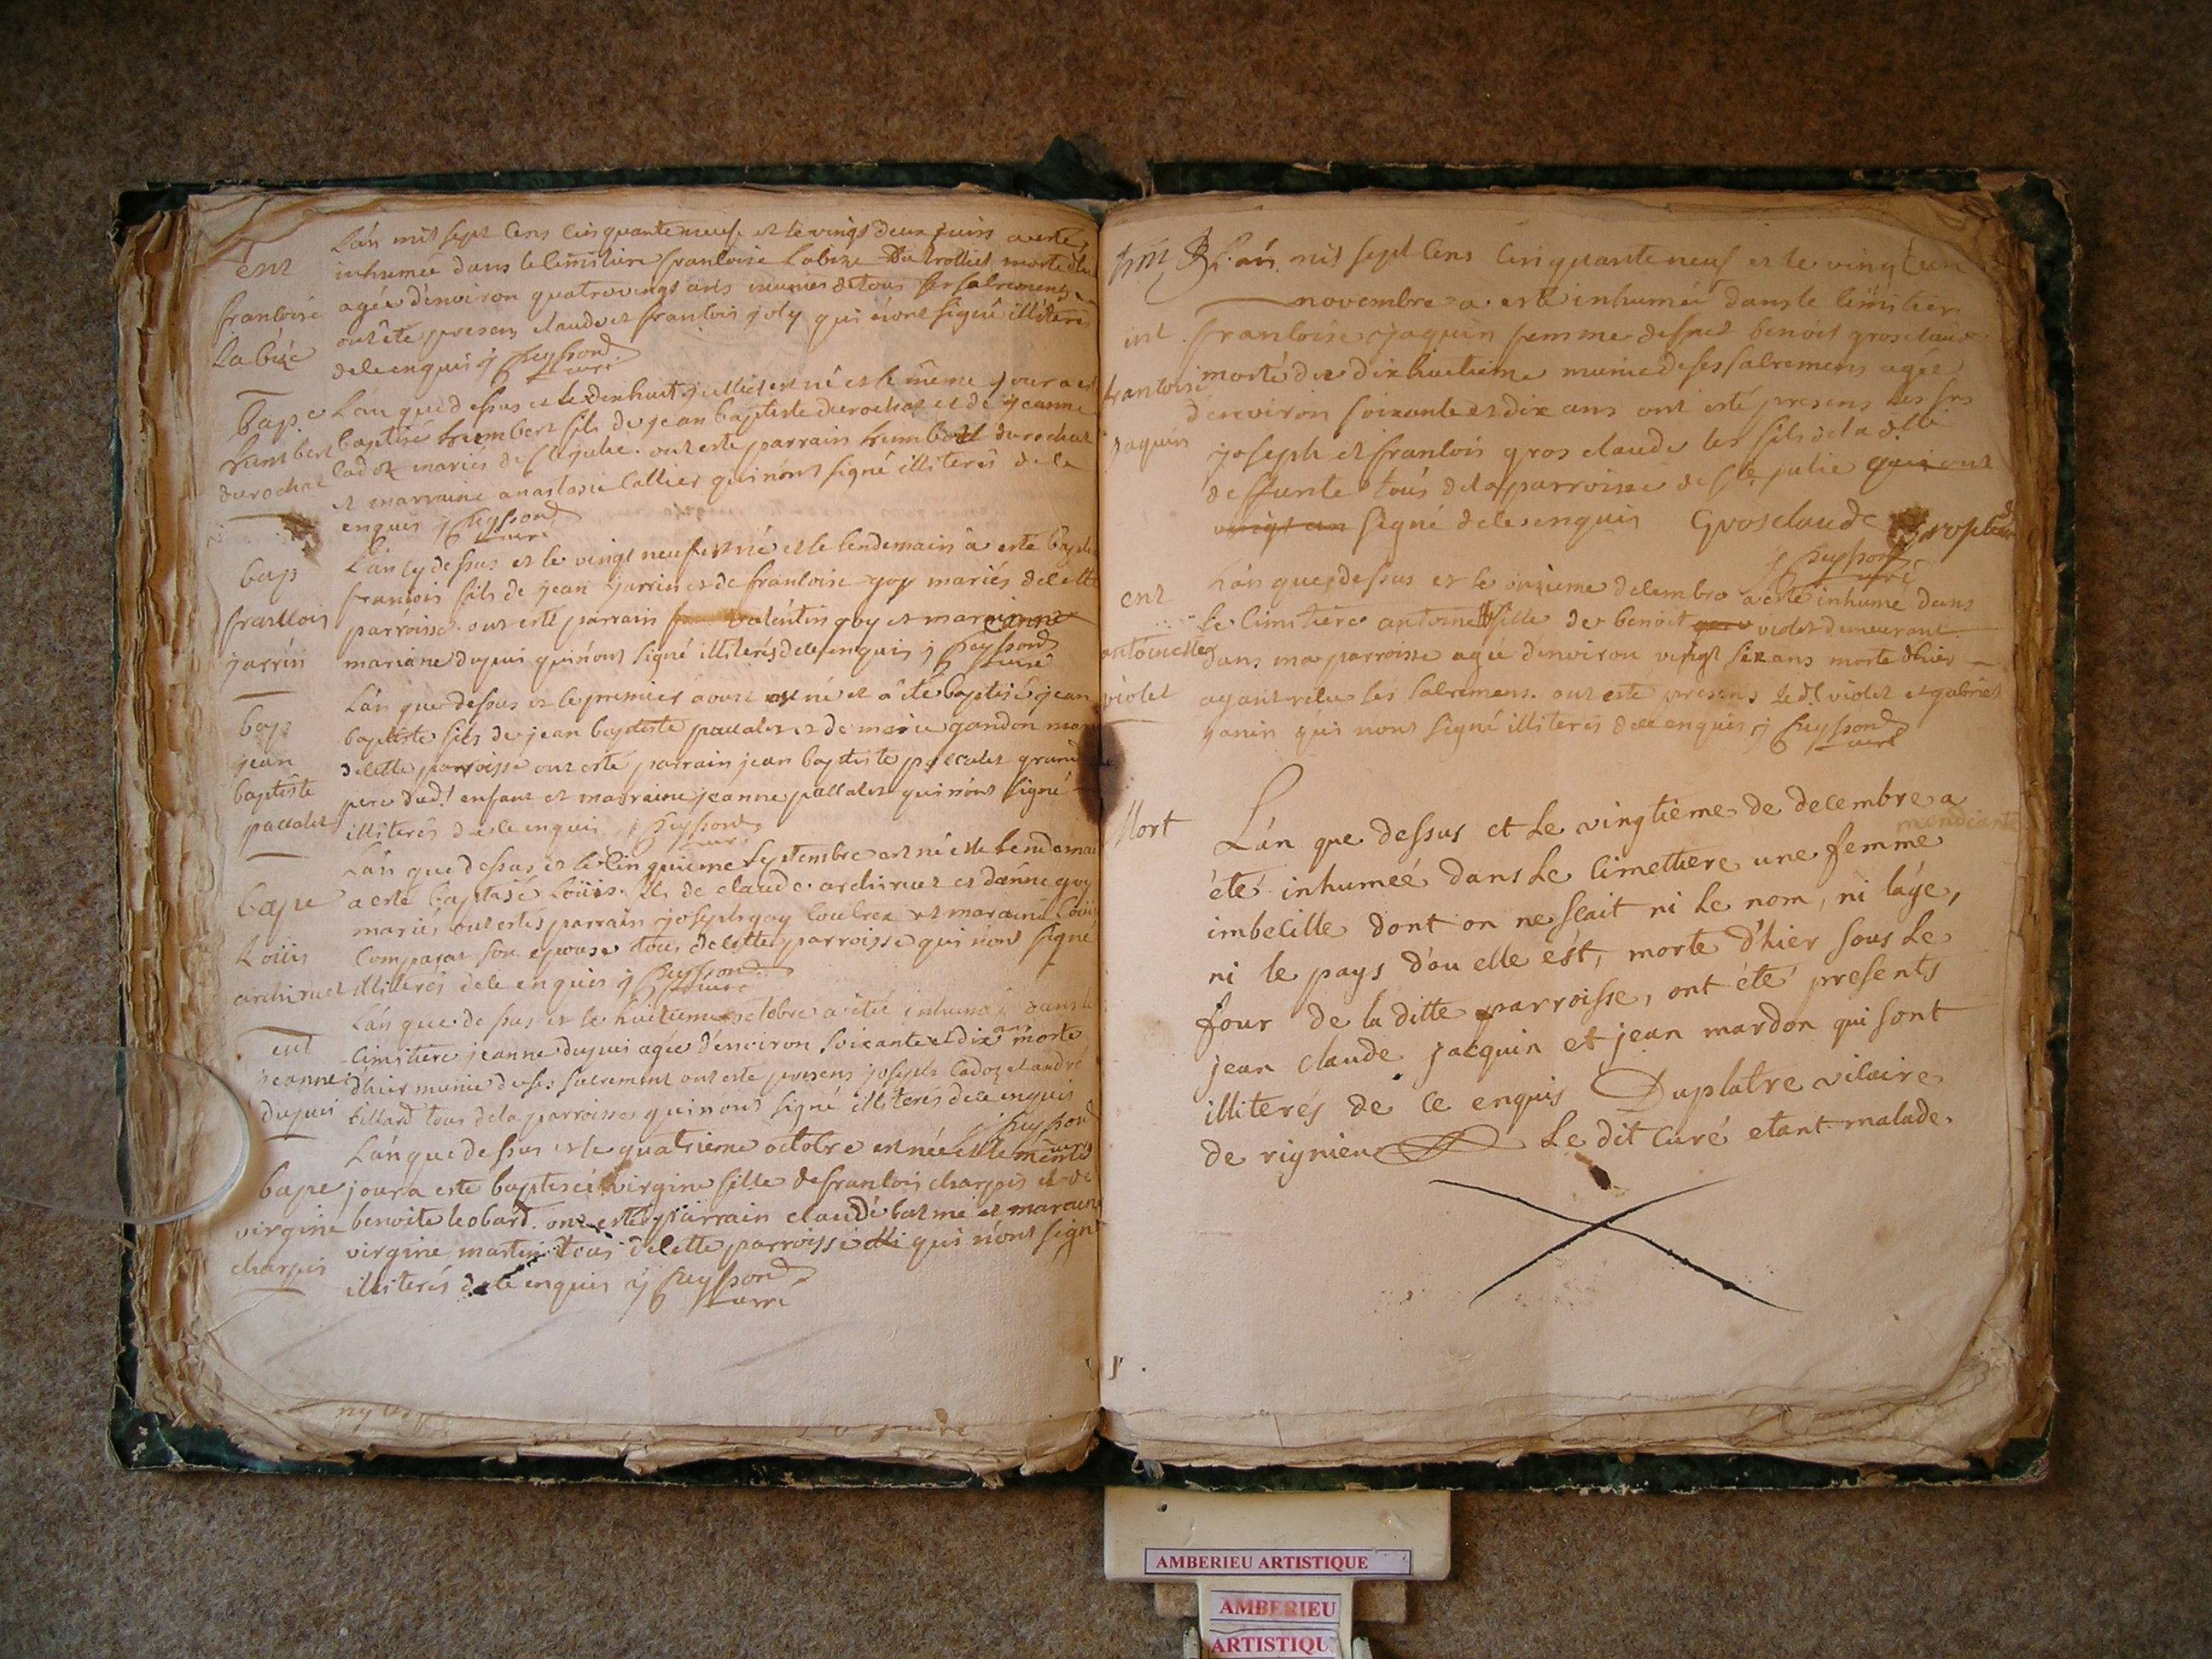 L'án mil sept Cens Cinquante neuf et le vingt deux juin a esté
ent inhumée dans le Cimitiere francoise Labize
francoise agée d'environ quatrevingt ans munies de tous ses sacremens
Labize ont été presens claude et francois joly qui n'ont signé illiterés
de ce enquis j Peysson
curé
bap.e L'án que dessus et le dix huit juillet est né et le même jour a est
humbert baptisé humbert fils de jean baptiste durochat et de jeanne
durochat Cadoz mariés de Ste julie. ont esté parrain humbert durochat
et marraine anastasie Callier qui n'ont signé illiterés de ce
enquis j Peysson
curé
bap L'án cy dessus et le vingt neuf est né et le lendemain a esté bapt
francois francois fils de jean jarrin et de francoise goy mariés de cette
parroisse. ont esté parrain valéntin goy et maraine
jarrin mariane dupui qui n'ont signé illiterés de ce enquis j Peysson
curé
bap L'án que dessus et le premier aoust est né et a été baptisé jean
baptiste fils de jean baptiste paccalet et de marie gandon mar
jean de cette parroisse ont esté parrain jean baptiste paccalet grand
baptiste pere dud.t enfant et marraine jeanne paccalet qui n'ont signé
paccalet illiterés de ce enquis j Peysson
curé
L'án que dessus et le Cinquieme Septembre est né et le lendemain
bape a esté baptisé Loüis fils de claude archirut et d'anne goy
mariés ont estés parrain joseph gay et maraine
Loüis son epouse tous de cette parroisse qui n'ont signé
archirut illiterés de ce enquis j Peysson
curé
L'án que dessus et le huitieme octobre a été inhumé dans le
ent Cimitiere jeanne dupui agée d'environ soixante et dix ans morte
jeanne d'hier munie de ses sacrement ont esté presens joseph Cadoz et andré
dupui billard tous de la parroisse qui n'ont signé illiterés de ce enquis
j Peysson
L'án que dessus et le quatrieme octobre est née et le même
bape jour a esté baptisée virgine fille de francois charpis et de
virgine benoite leobard. ont estés parrain claude batme et maraine
charpis virgine martin tous de cette parroisse qui n'ont signé
illiterés de ce enquis j Peysson
curé
L'án mil sept Cens Cinquante neuf et le vingt un
novembre a esté inhumée dans le Cimitier
ent francoise jaquin femme de benoit grosclaude
francoise morte du dixhuitieme munie de ses sacremens agée
jaquin d'environ soixante et dix ans ont esté presens les srs
joseph et francois gros claude les fils de la d.tte
deffunte tous de la parroisse de Ste julie qui ont
vingt un signé de ce enquis Grosclaude
j Peysson
curé
ent L'án que dessus et le onzieme decembre a esté inhumé dans
le Cimitiere antoinette fille de benoit violet demeurant
antoinette dans ma parroisse agée d'environ vingt six ans morte d'hier
violet ayant reçu les sacremens. ont esté presens le d.t violet et gabriel
janin qui n'ont signé illiterés de ce enquis j Peysson
curé
Mort L'án que dessus et Le vingtième de decembre a
mendiante
été inhumeé dans Le Cimettiere une femme
imbecille dont on ne sçait ni Le nom, ni láge,
ni le pays d'ou elle ést, morte d'hier sous Le
four de la ditte parroisse, ont été presents
jean claude jacquin et jean mardon qui sont
illiterés de ce enquis Duplatre vicaire
de rignieu Le dit Curé etant malade.
AMBERIEU ARTISTIQUE
AMBERIEU
ARTISTIQU